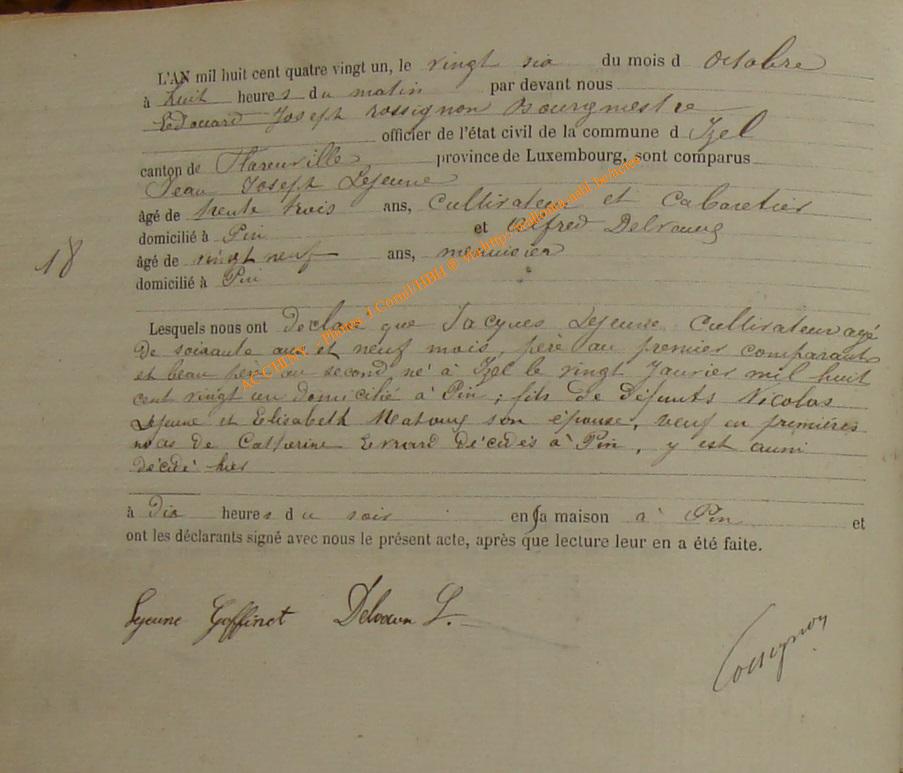 L'AN mil huit cent quatre vingt un, le vingt six du mois d octobre
à huit heures du matin par devant nous
Edouard Joseph Rossignon Bourgmestre
officier de l'état civil de la commune d Izel
canton de Florenville province de Luxembourg, sont comparus
Jean Joseph Lejeune
âgé de trente trois ans, cultivateur et cabaretier
domicilié à Pin et Alfred
18
âgé de vingt neuf ans, menuisier
domicilié à Pin
Lesquels nous ont déclaré que Jacques Lejeune cultivateur agé
de soixante ans et neuf mois, père au premier comparant
et beau père au second né à Izel le vingt Janvier mil huit
cent vingt un domicilié à Pin ; fils de défunts Nicolas
Lejeune et Elisabeth son épouse, veuf en premières
noces de Catherine Evrard décédés à Pin, y est aussi
décédé hier
à dix heures du soir en sa maison à Pin et
ont les déclarants signé avec nous le présent acte, après que lecture leur en a été faite.
Lejeune Goffinet
Rossignon